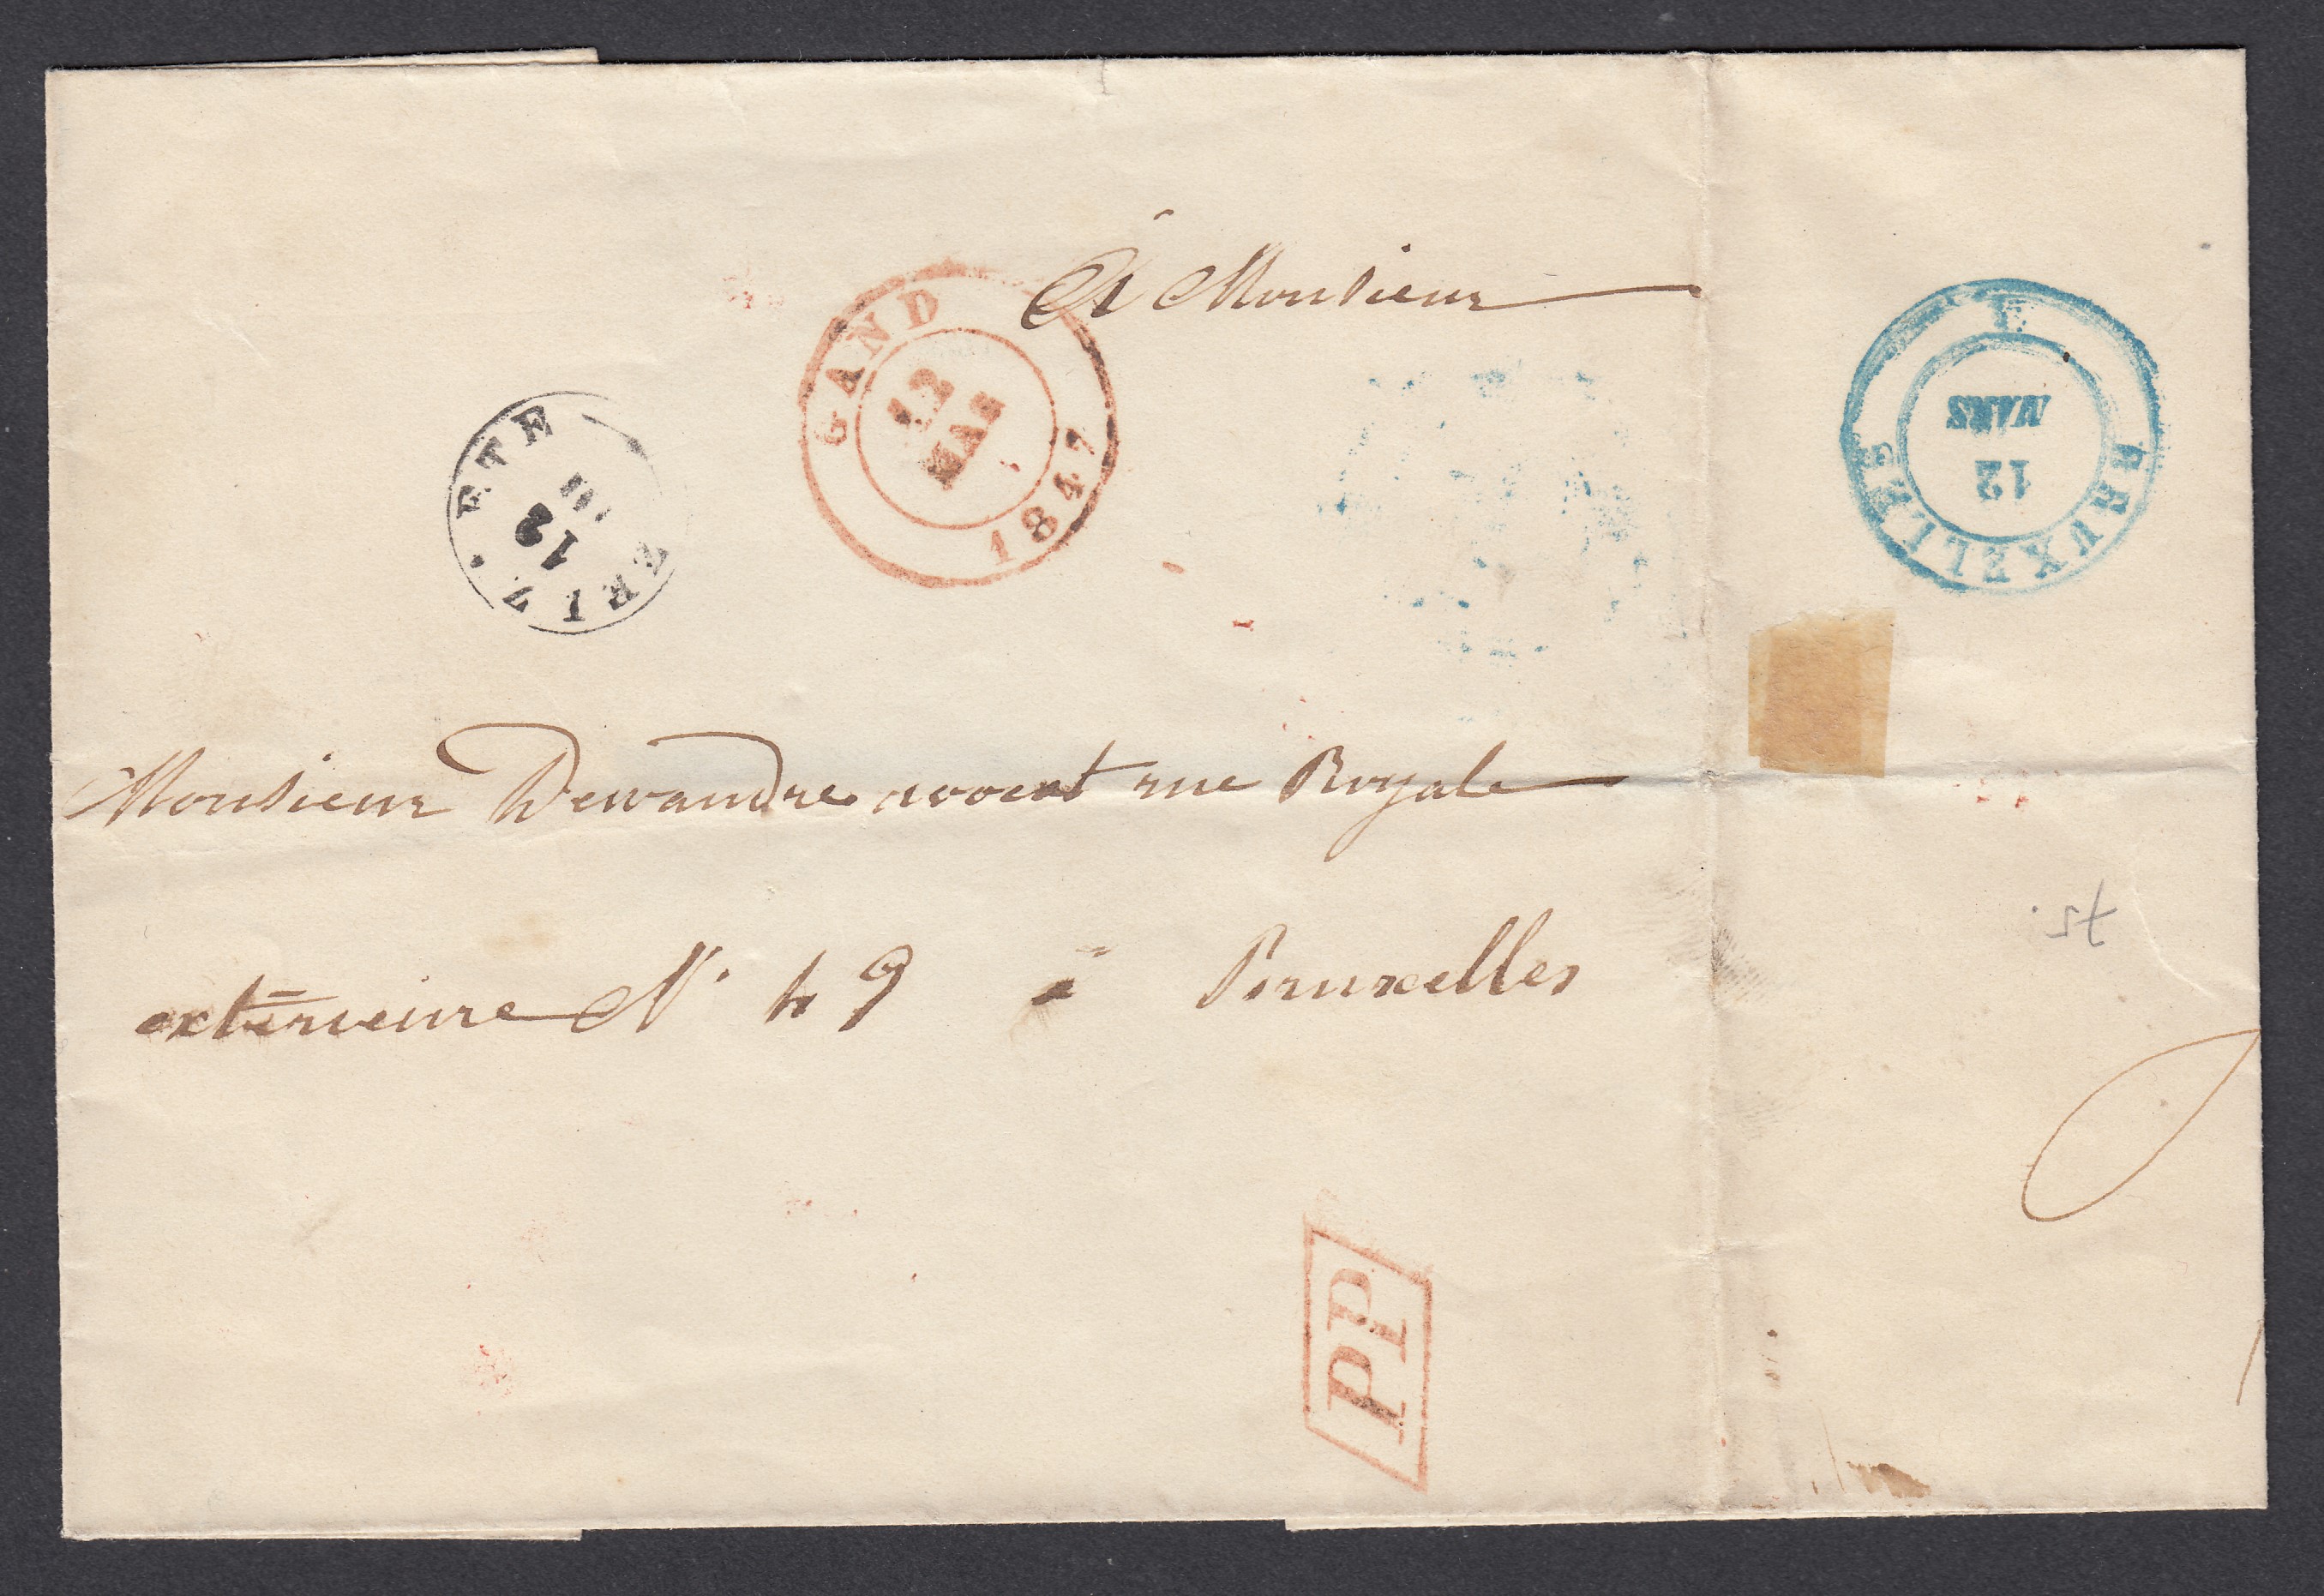 A Monsieur
GAND
12
MAR
1847
12
BRUXELLES
12
MARS
Monsieur Dewandre avocat rue Royale
extérieure N° 49 à Bruxelles
75.
PP